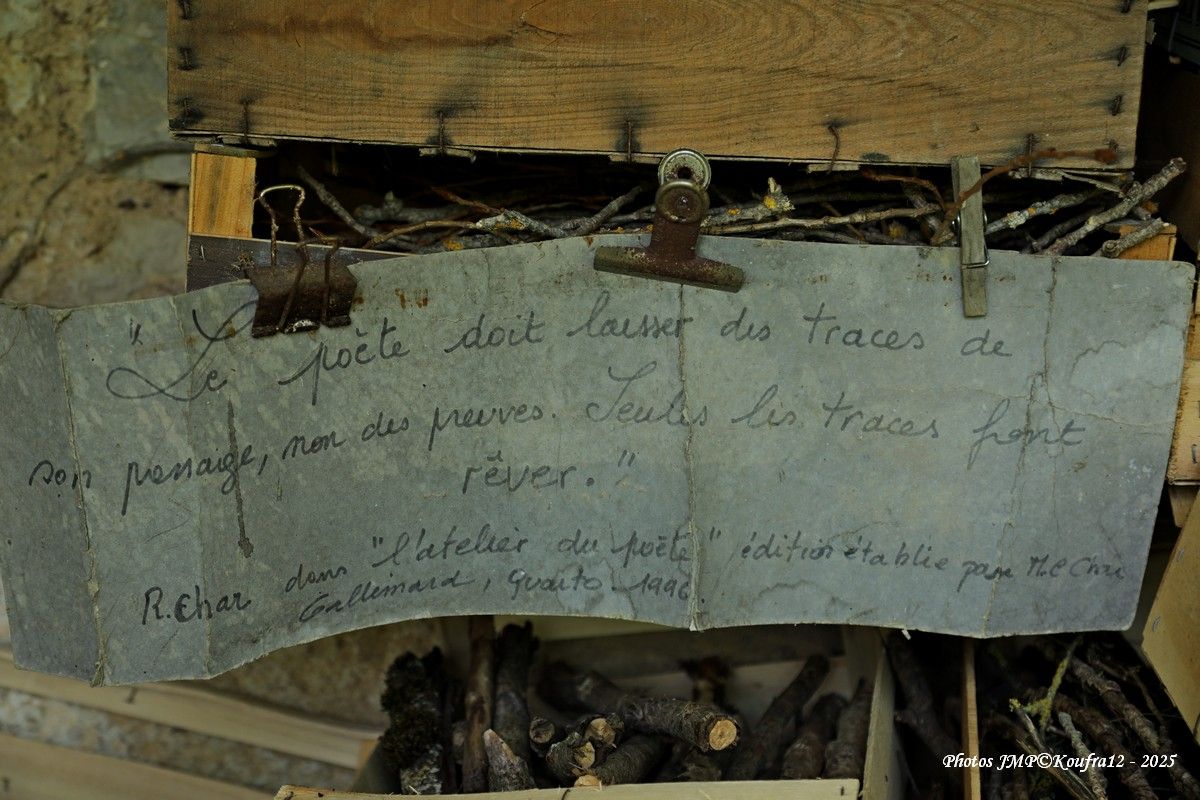 " Le poète doit laisser des traces de
son passage, non des preuves. Seules les traces font
rêver. "
R. Char dans "l'atelier du poète" édition établie par M.C Char
Gallimard, Quarto 1996.
Photos JMP©Koufra12 - 2025